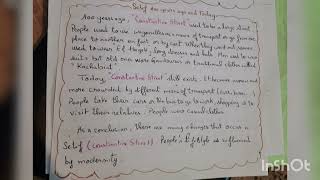 Setif 100 years ago and Today.
100 years ago, "Constantine Street" used to be a large street.
People used to use wagons as a means of transport or go from one
place to another on foot or by cart. When they went out women
used to wear El Mlaya, long dresses and hats. Men used to wear
suits but old one wore Gandouras or traditional clothes with
"Kachabia".
Today, "Constantine Street" still exists. It becomes narrow and
more crowded by different means of transport (cars, buses
People take their cars or the bus to go to work, shopping or to
visit their relatives. People wear casual clothes.
As a conclusion, there are many changes that occur in
Setif (Constantine Street). People's lifestyle is influenced
by modernity.
InShOt